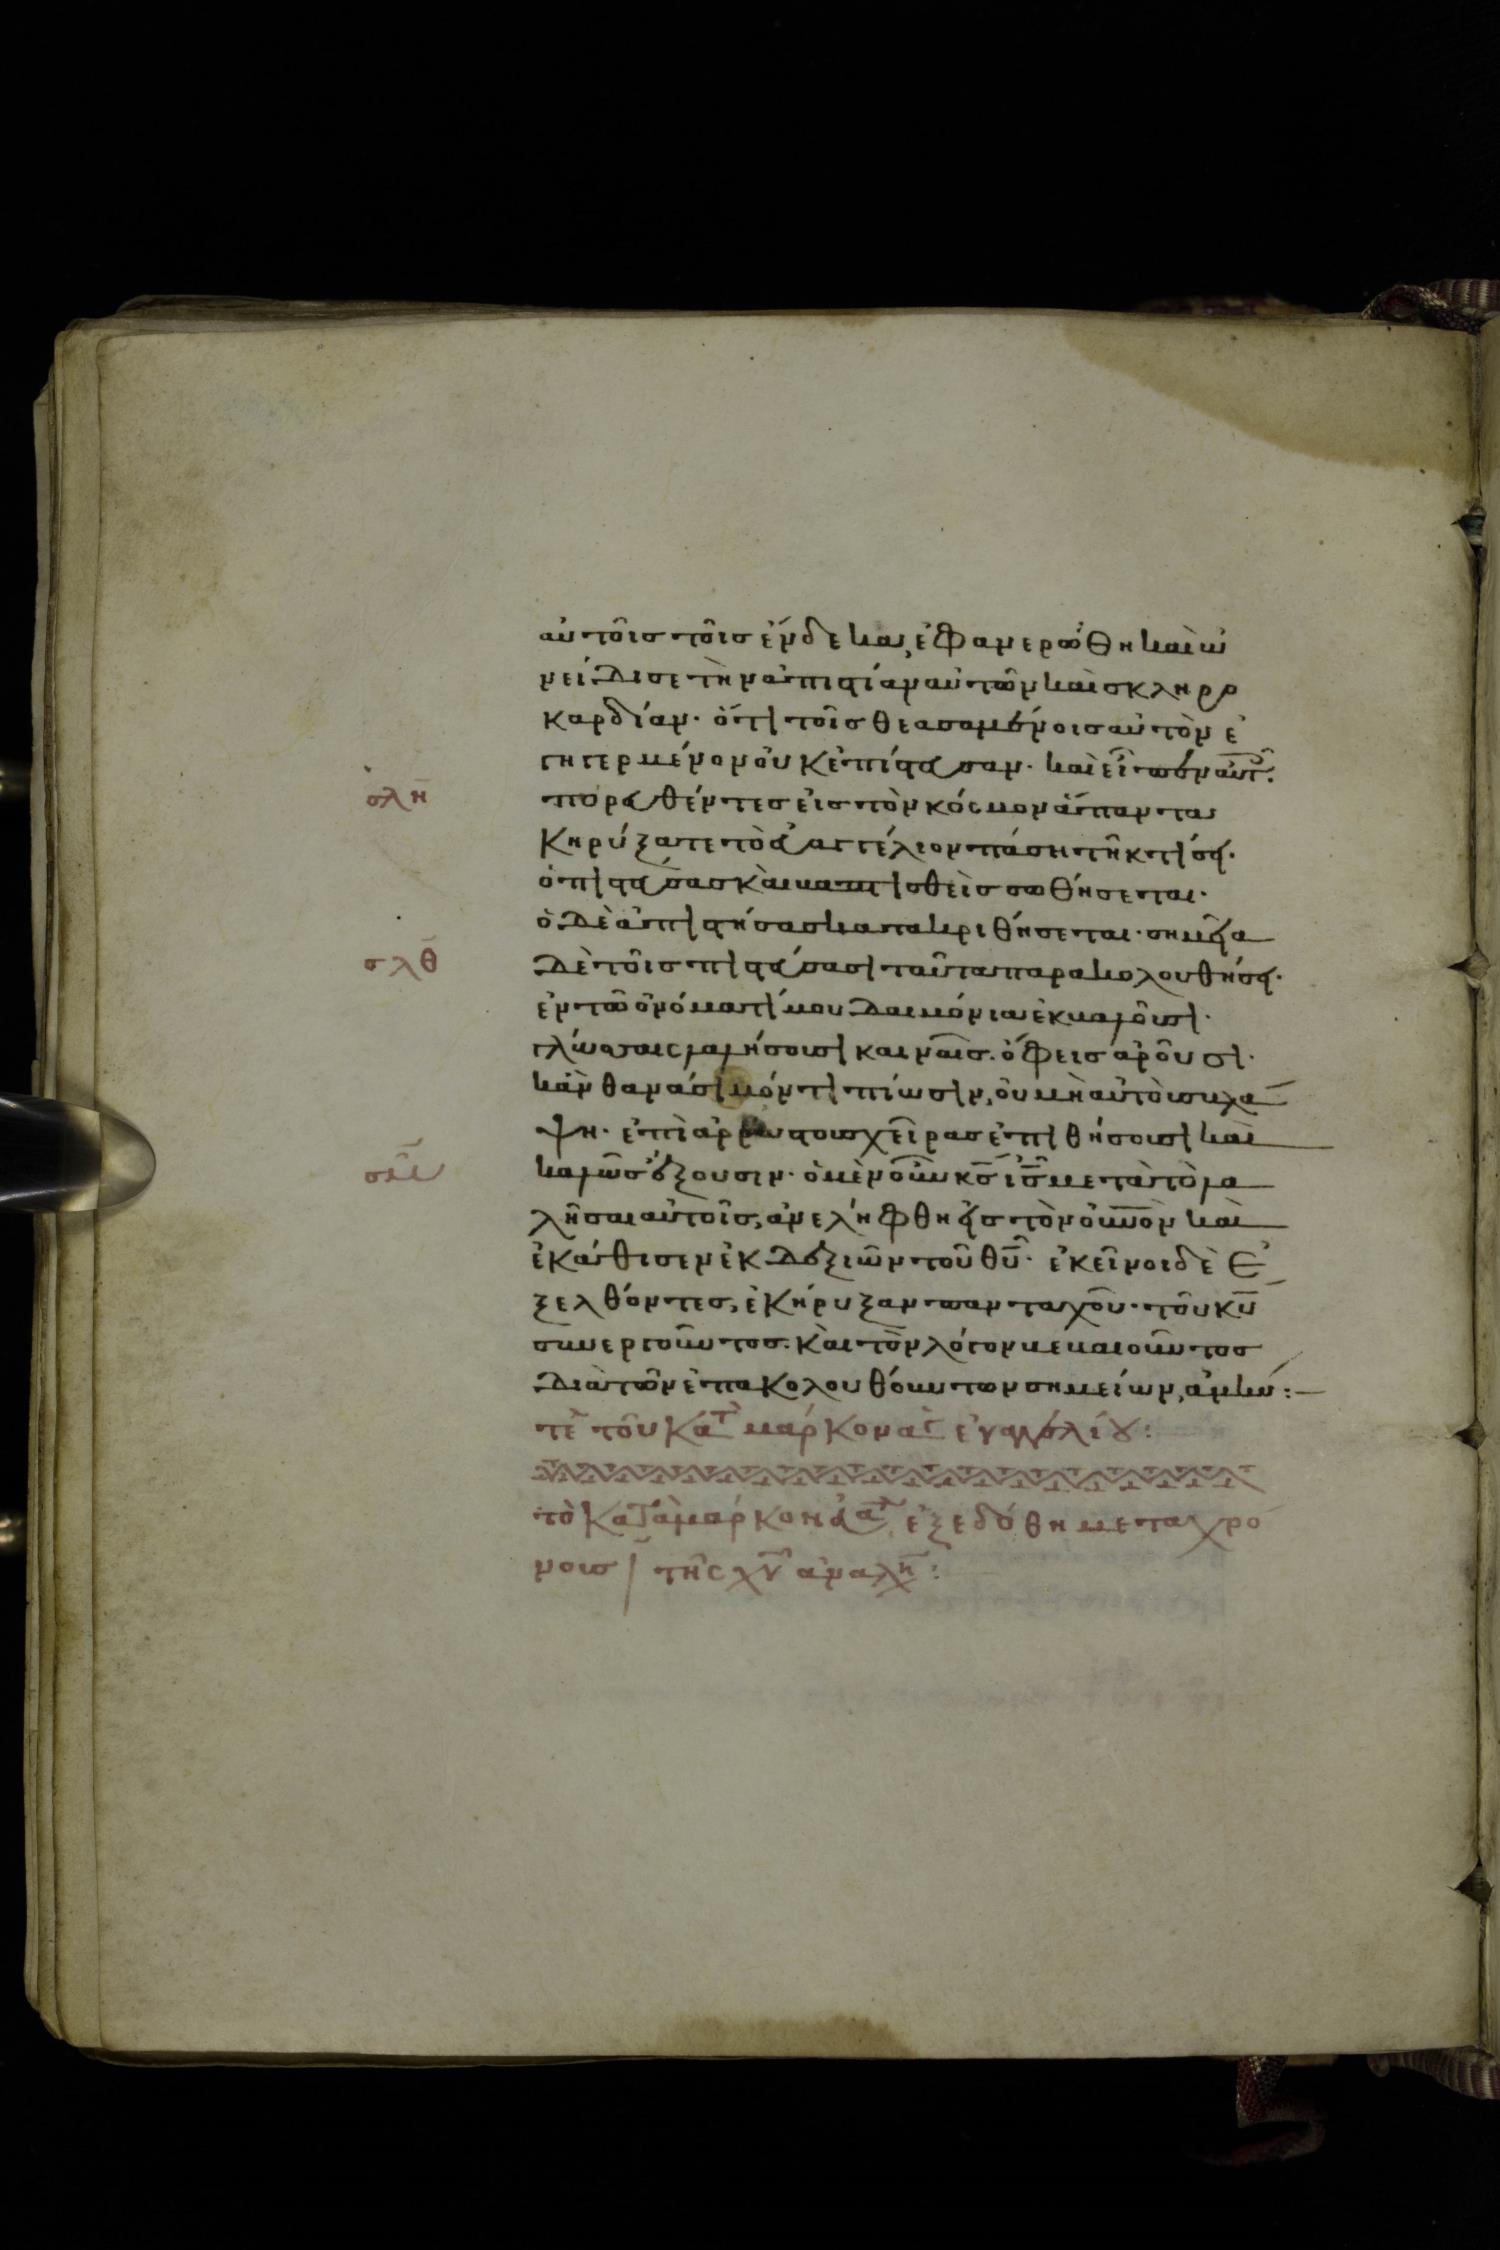 αὐτοῖς τοῖς ἕνδεκα, ἐφανερώθη καὶ ὠ
νείδισε τὴν ἀπιστίαν αὐτῶν καὶ σκληρο
καρδίαν· ὅτι τοῖς θεασαμένοις αὐτὸν ἐ
γηγερμένον οὐκ ἐπίστευσαν· καὶ εἶπεν αὐτοῖς·
σλη πορευθέντες εἰς τὸν κόσμον ἅπαντα
κηρύξατε τὸ εὐαγγέλιον πάσῃ τῇ κτίσει·
ὁ πιστεύσας καὶ βαπτισθεὶς σωθήσεται·
ὁ δὲ ἀπιστήσας κατακριθήσεται· σημεῖα
σλθ δὲ τοῖς πιστεύσασι ταῦτα παρακολουθήσει·
ἐν τῷ ὀνόματί μου δαιμόνια ἐκβαλοῦσι·
γλώσσαις λαλήσουσι καιναῖς· ὄφεις ἀροῦσι·
κἂν θανάσιμόν τι πίωσιν, οὐ μὴ αὐτοὺς βλά
ψῃ· ἐπὶ ἀρρώστους χεῖρας ἐπιθήσουσι καὶ
σμ καλῶς ἕξουσιν· ὁ μὲν οὖν κς ις μετὰ τὸ λα
λῆσαι αὐτοῖς, ἀνελήφθη εἰς τὸν οὐνον καὶ
ἐκάθισεν ἐκ δεξιῶν τοῦ θυ· ἐκεῖνοι δὲ ἐ
ξελθόντες, ἐκήρυξαν πανταχοῦ· τοῦ κυ
συνεργοῦντος· καὶ τὸν λόγον βεβαιοῦντος
διὰ τῶν ἐπακολουθούντων σημείων, ἀμήν:—
τε τοῦ κατ μάρκον ἁγ εὐαγγελίου:
τὸ κατὰ μάρκον εὐα ἐξεδόθη μετα χρό
νους ι τῆς χυ ἀναλη: